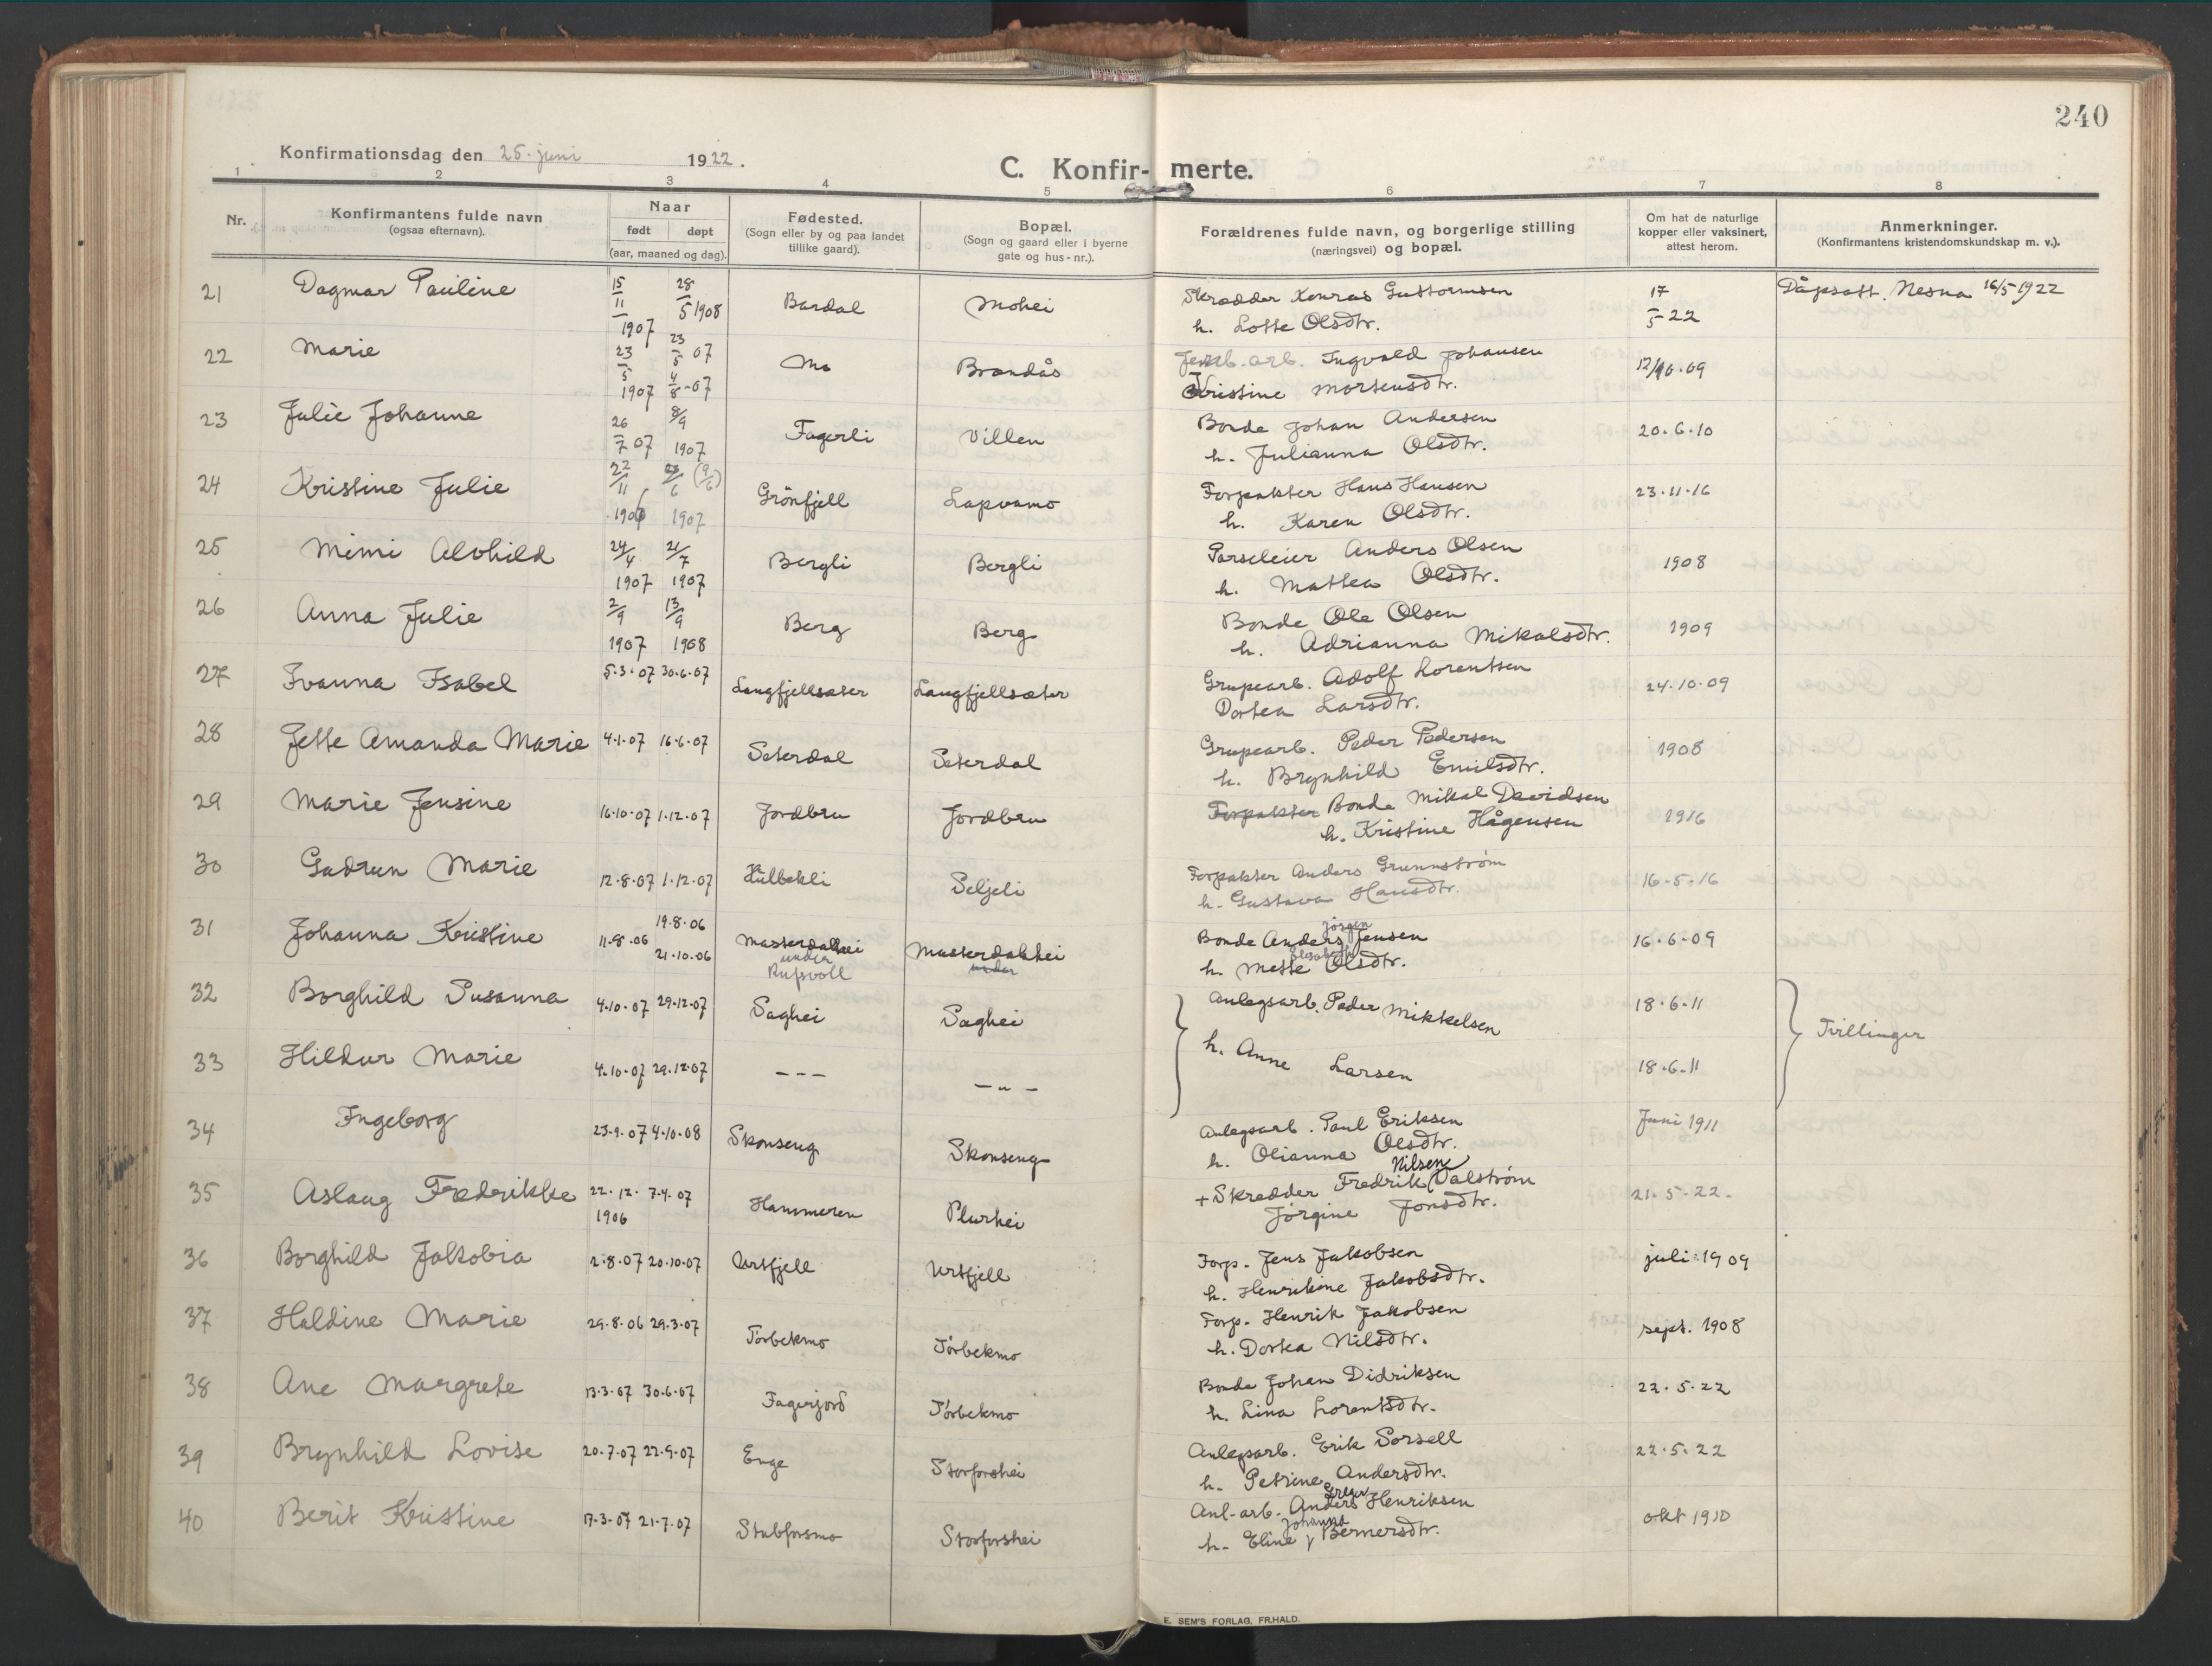 240
Konfirmationsdag den 25. juni 1922.
C. Konfir- merte.
1 2 3 4 5 6 7 8
Nr.
Konfirmantens fulde navn
(ogsaa efternavn).
Naar
født døpt
(aar, maaned og dag).
Fødested.
(Sogn eller by og paa landet
tillike gaard).
Bopæl.
(Sogn og gaard eller i byerne
gate og hus-nr.).
Forældrenes fulde navn, og borgerlige stilling
(næringsvei) og bopæl.
Om hat de naturlige
kopper eller vaksinert,
attest herom.
Anmerkninger.
(Konfirmantens kristendomskundskap m. v.).
21 Dagmar Pauline 15/11 1907 28/5 1908 Bardal Mohei Skrædder Konrad Guttormsen 17/5 22 Dåpsatt. Nesna 16/5 1922
h. Lotte Olsdtr.
22 Marie 23/5 1907 23/5 07 4/8-07 Mo Brandås Jernb.arb. Ingvald Johansen 12/10.09
Kristine Mortensdtr.
23 Julie Johanne 26/7 07 8/9 1907 Fagerli Villen Bonde Johan Andersen 20.6.10
h. Julianna Olsdtr.
24 Kristine Julie 22/11 1906 /6 (9/6) 1907 Grönfjell Lapvamo Forpakter Hans Hansen 23.11.16
h. Karen Olsdtr.
25 Mimi Alvhild 24/4 1907 21/7 1907 Bergli Bergli Parseleier Anders Olsen 1908
h. Mattea Olsdtr.
26 Anna Julie 2/9 1907 13/9 1908 Berg Berg Bonde Ole Olsen 1909
h. Adrianna Mikalsdtr.
27 Ivanna Isabel 5.3.07 30.6.07 Langfjellsæter Langfjellsæter Grupearb. Adolf Lorentsen 24.10.09
Dortea Larsdtr.
28 Jette Amanda Marie 4.1.07 16.6.07 Seterdal Seterdal Grupearb. Peder Pedersen 1908
h. Brynhild Emilsdtr.
29 Marie Jensine 16.10.07 1.12.07 Jordbru Jordbru Forpakter Bonde Mikal Davidsen 1916
h. Kristine Hågensen
30 Gudrun Marie 12.8.07 1.12.07 Hulbekli Seljeli Forpakter Anders Grunnstrøm 16.5.16
h. Gustava Hansdtr.
31 Johanna Kristine 11.8.06 19.8.06 21.10.06 Masterdalhei under Rufsvoll Masterdalshei under Bonde Anders Jörgen Jensen 16.6.09
h. Mette Elisabeth Olsdtr.
32 Borghild Susanna 4.10.07 29.12.07 Saghei Saghei Anlegsarb. Peder Mikkelsen 18.6.11 Tvillinger
h. Anne Larsen
33 Hildur Marie 4.10.07 29.12.07 --- -"- 18.6.11
34 Ingeborg 23.9.07 4.10.08 Skonseng Skonseng Anlegsarb. Paul Eriksen Juni 1911
h. Olianna Olsdtr.
35 Aslaug Fredrikke 22.12.1906 7.4.07 Hammeren Plurhei + Skredder Fredrik Nilsen Dalstrøm 21.5.22.
Jørgine Jonsdtr.
36 Borghild Jakobia 2.8.07 20.10.07 Urtfjell Urtfjell Forp. Jens Jakobsen juli 1909
h. Henrikine Jakobsdtr.
37 Haldine Marie 29.8.06 29.3.07 Tørbekmo Tørbekmo Forp. Henrik Jakobsen sept. 1908
h. Dortea Nilsdtr.
38 Ane Margrete 13.3.07 30.6.07 Fagerjord Tørbekmo Bonde Johan Didriksen 22.5.22
h. Lina Lorentsdtr.
39 Brynhild Lovise 20.7.07 22.9.07 Enge Storforshei Anlegsarb. Erik Sorsell 22.5.22
h. Petrine Andersdtr.
40 Berit Kristine 17.3.07 21.7.07 Stubforsmo Storforshei Anl.arb. Anders Henriksen okt 1910
h. Eline Johanna Bernersdtr.
E. SEM'S FORLAG, FR.HALD.